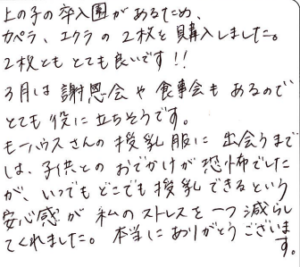 上の子の卒入園があるため、
カペラ、エクラの2枚を購入しました。
2枚ともとても良いです!!
3月は謝恩会や食事会もあるので
とても役に立ちそうです。
モーハウスさんの授乳服に出会うまで
は、子供とのおでかけが恐怖でした
が、いつでもどこでも授乳できるという
安心感が私のストレスを一つ減らし
てくれました。本当にありがとうございま
す。